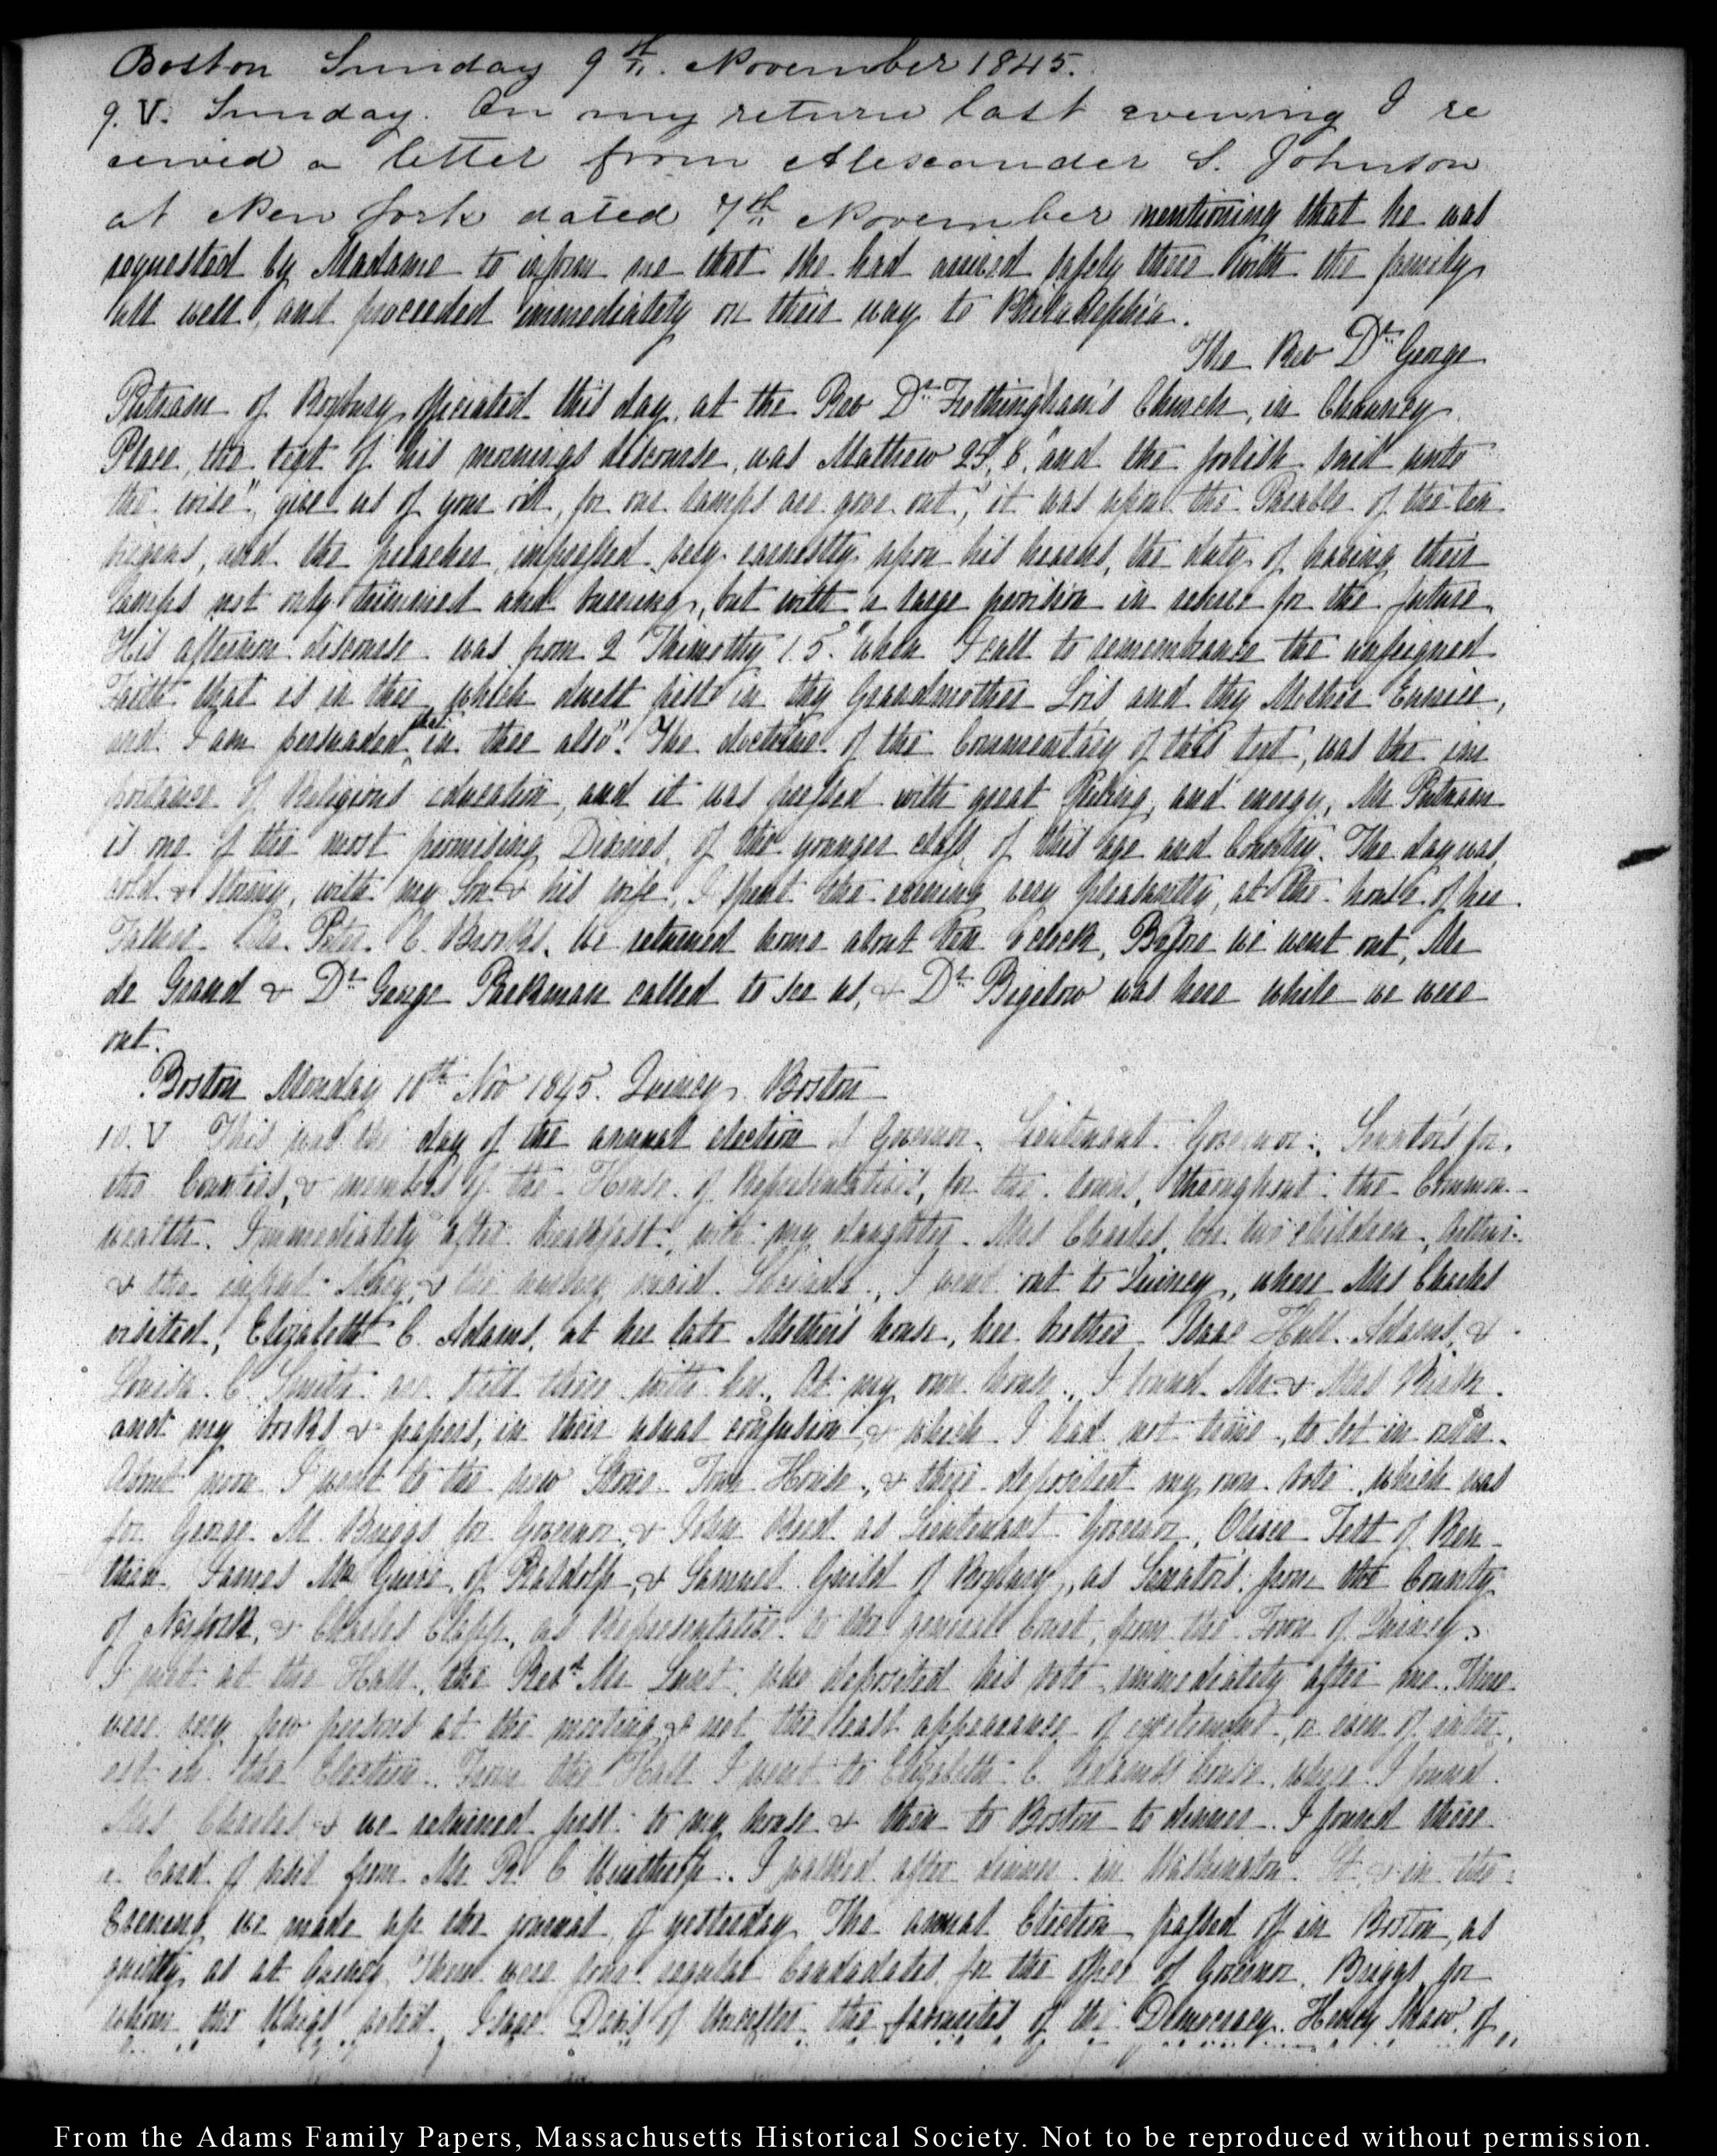 Boston Sunday 9th. November 1845.
9. V. Sunday. On my return last evening I re
ceived a letter from Alexander S. Johnson
at New York dated 7th November mentioning that he was
requested by Madame to inform me that she had arrived safely there with the family
all well, and proceeded immediately on their way to Philadelphia.
The Rev Dr. George
Putnam of Roxbury officiated this day, at the Rev Dr. Frothingham's Church, in Chauncy
Place, the text of his mornings discourse, was Mathew 25, 8, "and the foolish said unto
the wise", give us of your oil, for our lamps are gone out", it was upon the Parable of the ten
virgins, and the preacher, impressed very earnestly upon his hearers, the duty of having their
lamps not only trimmed and burning, but with a large provision in reserve for the future.
His afternoon discourse was from 2 Thimothy 1. 5. "when I call to remembrance the unfeigned
Faith that is in thee, which dwelt first in thy Grandmother Lois and thy Mother Eunice,
and I am persuaded that in thee also". The doctrine of the Commentary of this text, was the im
portance of Religious education, and it was pressed with great feeling, and energy, Mr Putnam
is one of the most promising Divines, of the younger class, of this age and Country. The day was
cold & stormy, with my Son & his wife, I spent the evening very pleasantly, at the house of her
Father Mr. Peter C. Brooks. We returned home about ten o'clock, Before we went out, Mr
de Grand & Dr. George Parkman called to see us, & Dr. Bigelow was here while we were
out.
Boston Monday 10th Nov 1845. Quincy Boston
10. V This was the day of the annual election of Governor, Lieutenant Governor, Senators for
the Counties, & members of the House of Representatives, for the towns, throughout the Common-
wealth. Immediately after breakfast, with my daughter Mrs Charles, her two children, Arthur
& the infant Mary, & the nursery maid I went out to Quincy, where Mrs Charles
visited, Elizabeth C. Adams, at her late Mother's house, her brother Isaac Hull Adams, &
Louisa C. Smith are still there with her. At my own house, I found Mr & Mrs
and my books & papers, in their usual confusion, & which I had not time, to set in order.
About noon I went to the new Stone Town House, & there deposited my own vote, which was
for George N. Briggs for Governor, & John Reed as Lieutenant Governor, Oliver Felt of Ren-
tham James Mc Guire, of Randolph, & Samuel Guild of Roxbury, as Senators from the County
of Norfolk, & Charles Clapp, as Representative to the general Court, from the Town of Quincy.
I met at the Hall, the Revd. Mr Lunt, who deposited his vote, immediately after me. There
were very few persons at the meeting, & not the least appearance of excitement, or even of inter
est in the Election. From the Hall I went to Elizabeth C. Adams's house, where I found
Mrs Charles, & we returned first to my house & then to Boston to dinner. I found there
a Card of visit from Mr R. C Winthrop. I walked after dinner in Washington St, & in the
Evening we made up the journal of yesterday. The annual Election passed off in Boston, as
quietly, as at Quincy There were four regular Candidates, for the office of Governor. Briggs for
whom the Whigs voted. Isaac Davis of Worcester the favourites of the Democracy. Henry Shaw of
From the Adams Family Papers, Massachusetts Historical Society. Not to be reproduced without permission.